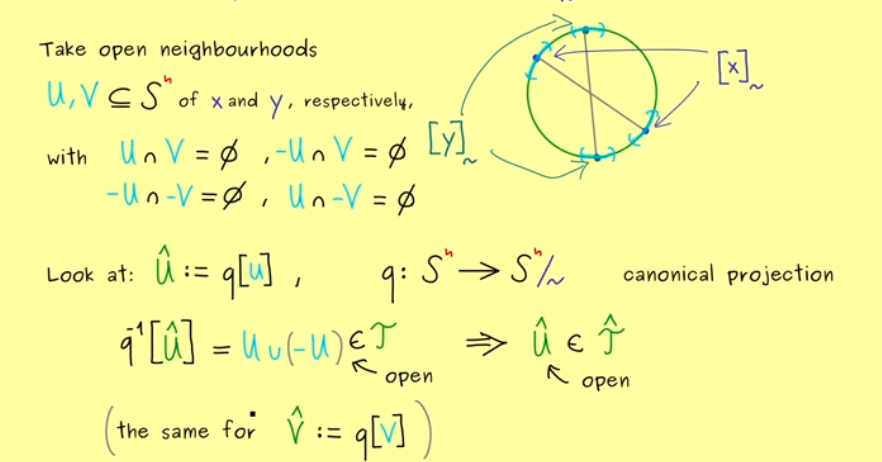 Take open neighbourhoods
U, V ⊆ Sⁿ of x and y, respectively,
[x]~
[y]~
with U ∩ V = ∅ , -U ∩ V = ∅
-U ∩ -V = ∅ , U ∩ -V = ∅
Look at: Û := q[U] , q: Sⁿ → Sⁿ/~ canonical projection
q⁻¹[Û] = U ∪ (-U) ∈ 𝒯 ⇒ Û ∈ 𝒯̂
open open
(the same for V̂ := q[V])